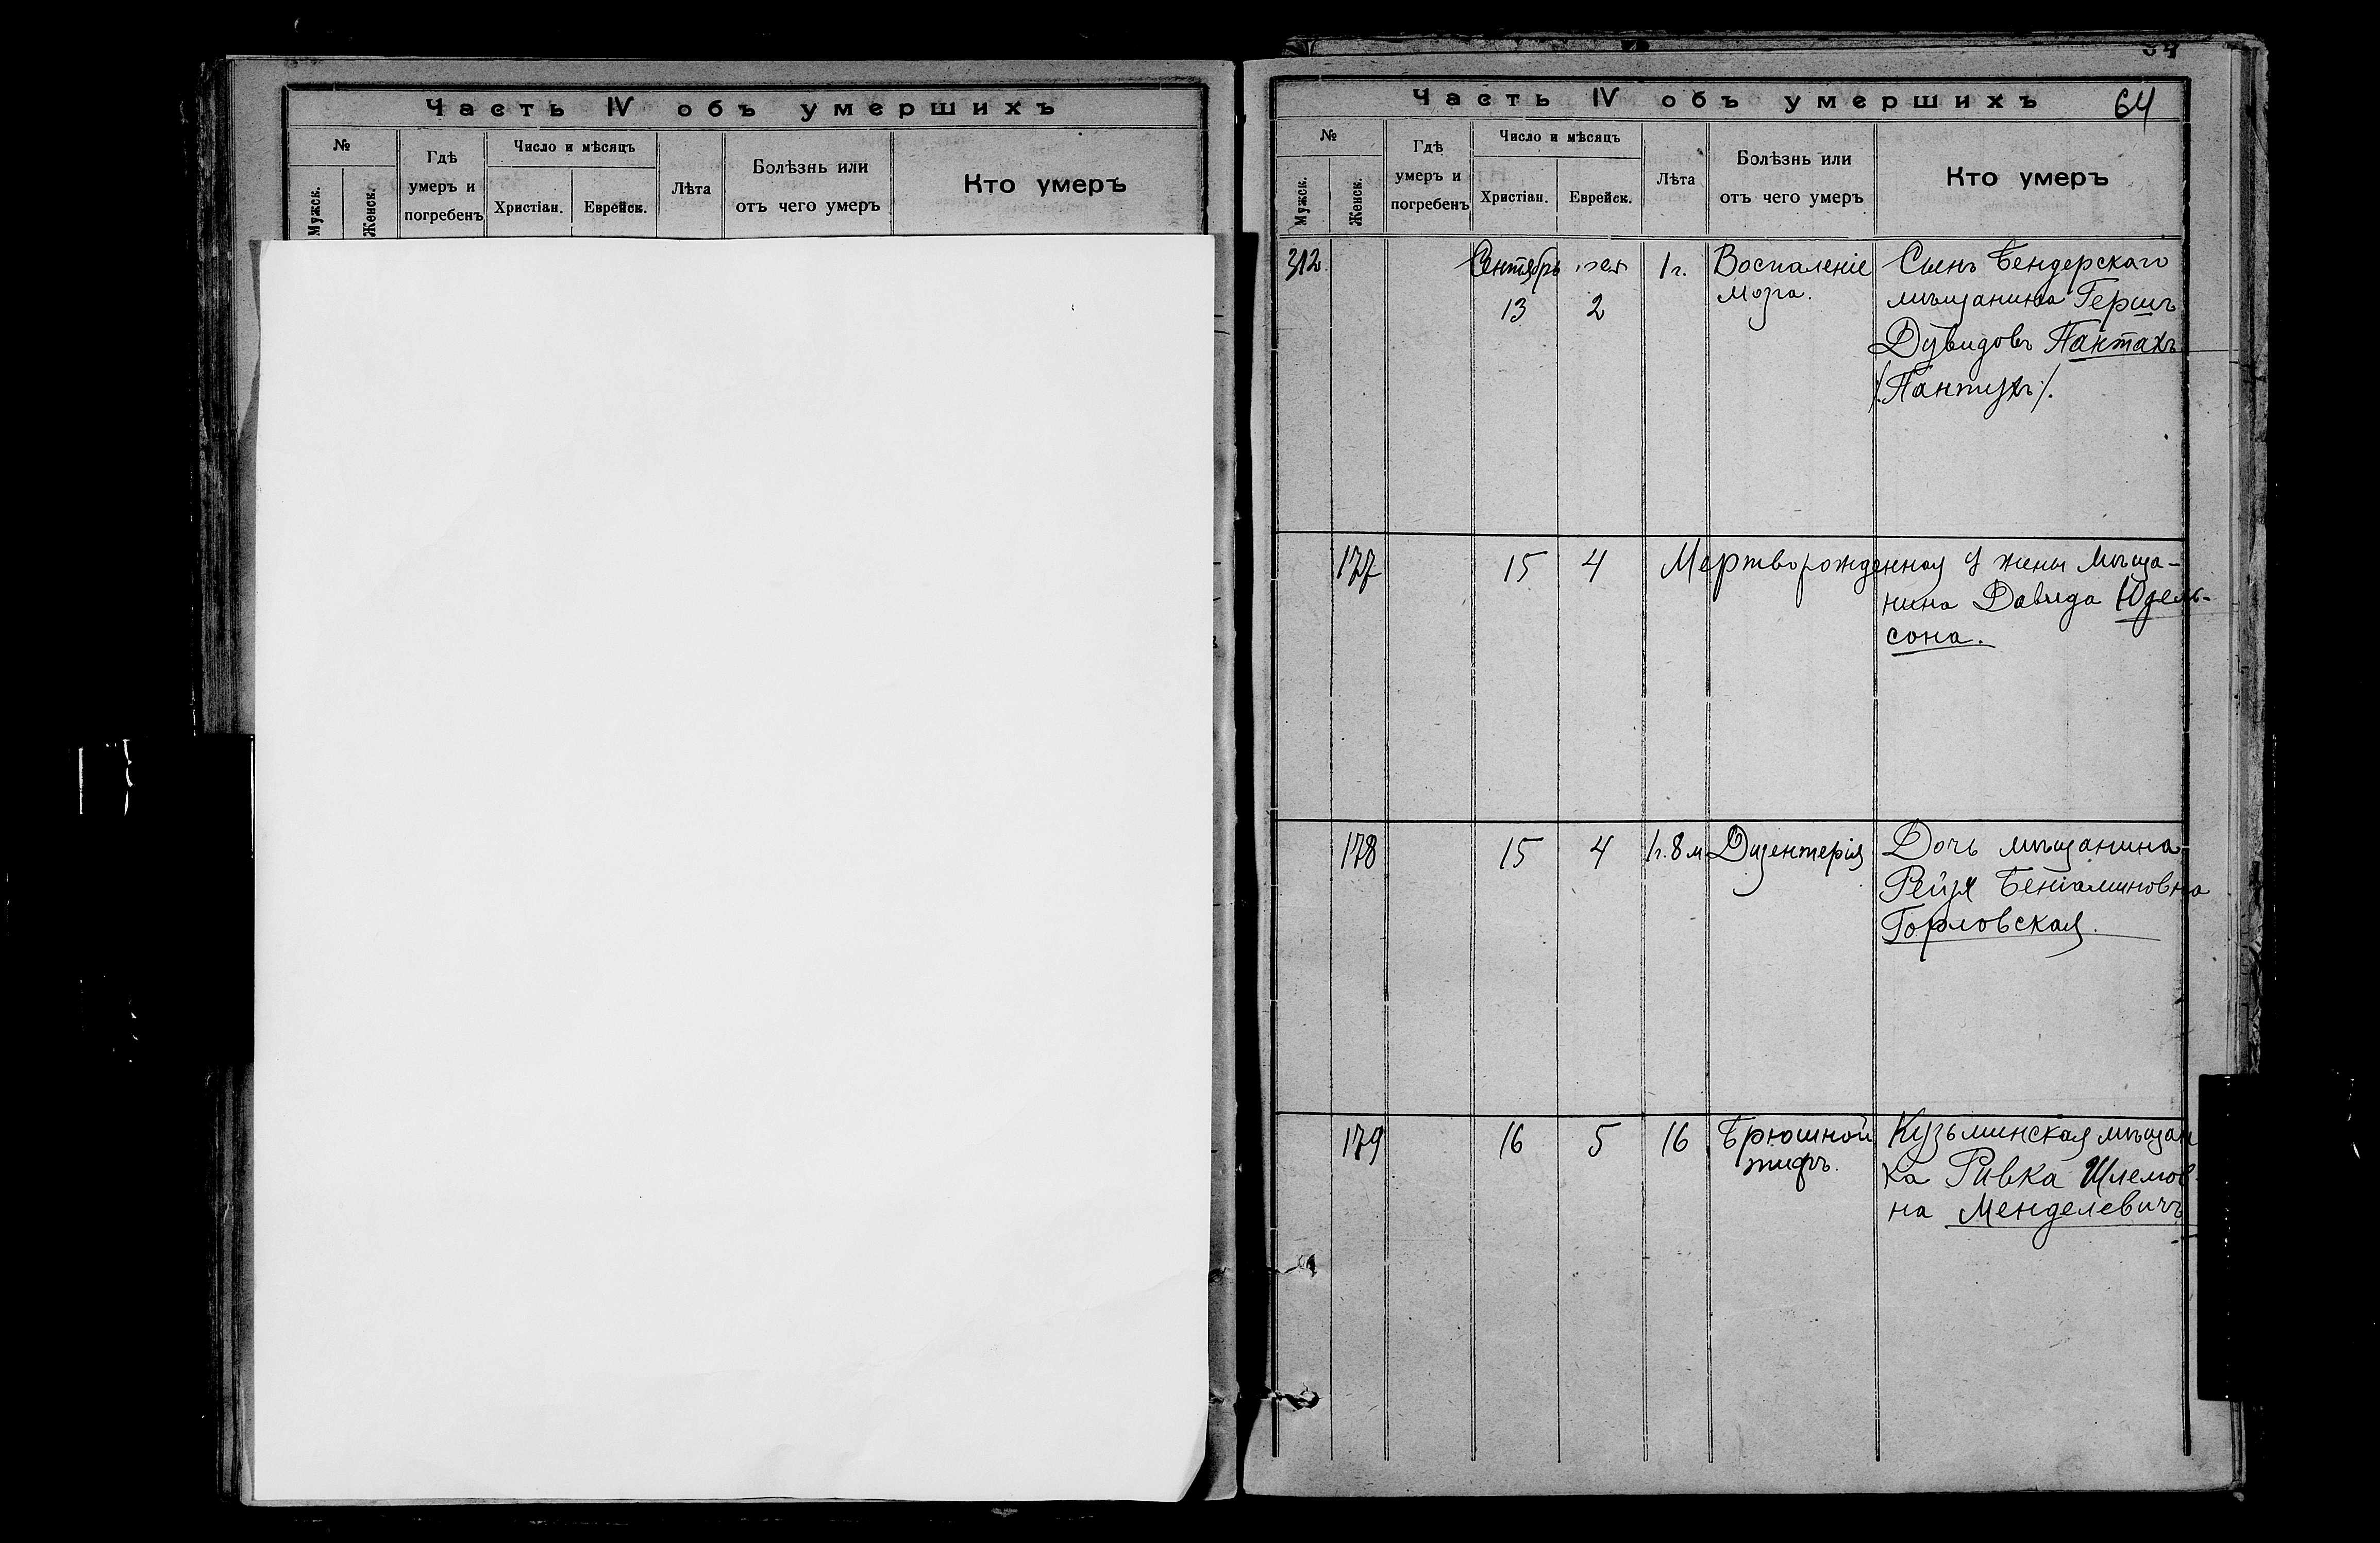 Часть IV объ умершихъ
№
Мужск.
Женск.
Гдѣ
умеръ и
погребенъ
Число и мѣсяцъ
Христіан.
Еврейск.
Лѣта
Болѣзнь или
отъ чего умеръ
Кто умеръ
Часть IV объ умершихъ
64
№
Мужск.
Женск.
Гдѣ
умеръ и
погребенъ
Число и мѣсяцъ
Христіан.
Еврейск.
Лѣта
Болѣзнь или
отъ чего умеръ
Кто умеръ
312.
Сентябрь
13
2
1 г.
Воспаленіе
мозга.
Сынъ Бендерскаго
мѣщанина Гершъ
Дувидовъ Пантахъ
/:Пантухъ:/.
177
15
4
Мертворожденная у жены мѣща-
нина Давида Юдель-
сона.
178
15
4
1г. 8 м
Дизентерія
Дочь мѣщанина
Рейзя Беніаминовна
Горловская.
179
16
5
16
Брюшной
тифъ.
Кузьминская мѣщан
ка Ривка Шлемов-
на Менделевичъ